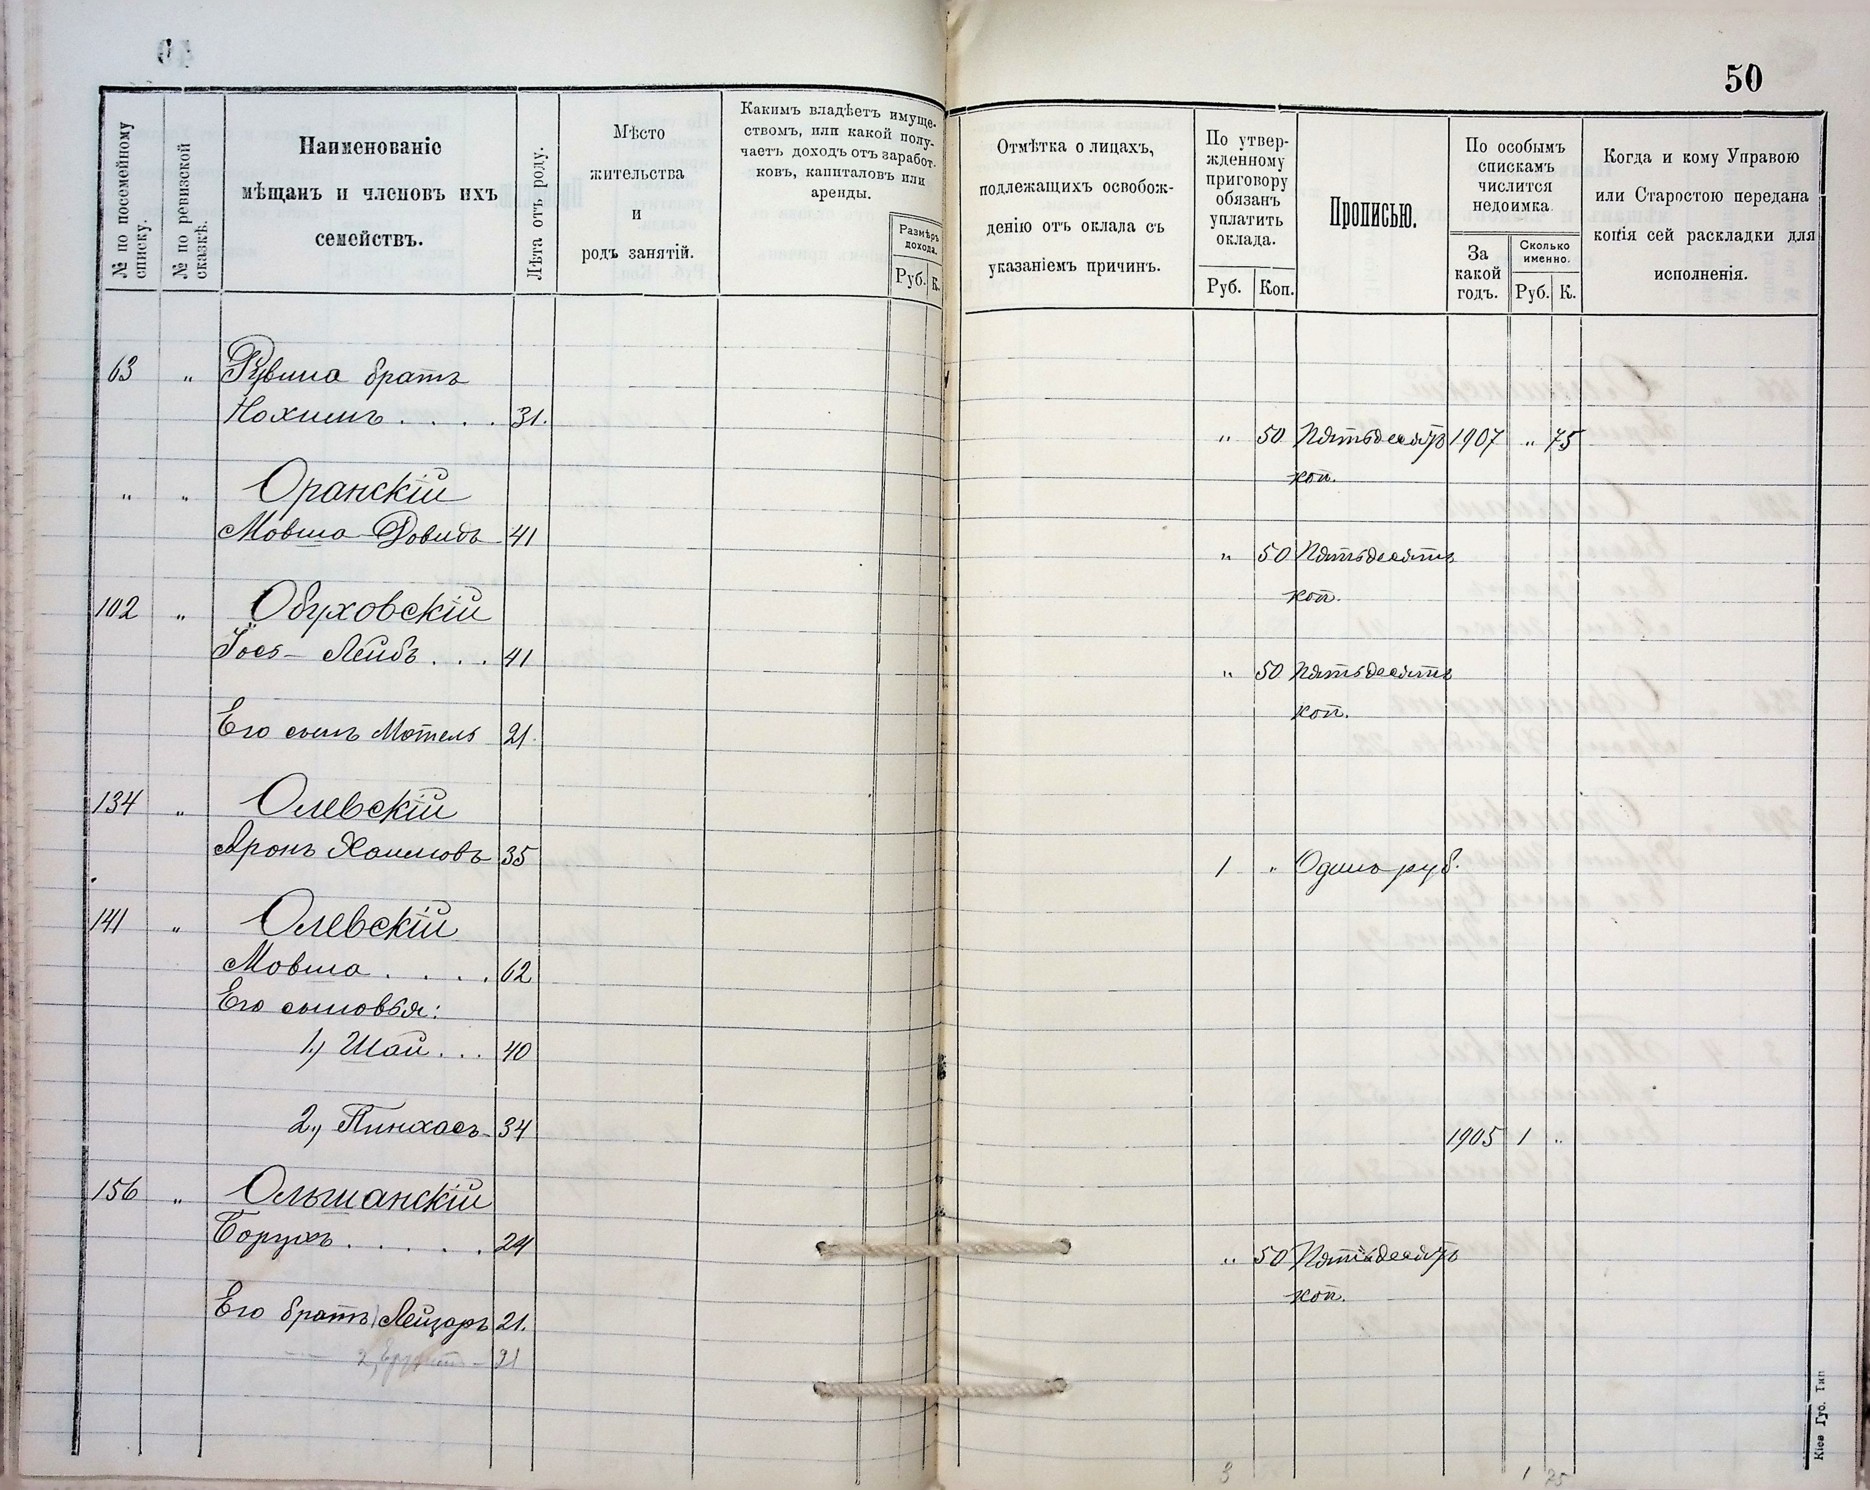 50
№ по посемейному списку.
№ по ревизской сказкѣ.
Наименованіе
мѣщанъ и членовъ ихъ
семействъ.
Лѣта отъ роду.
Мѣсто
жительства
и
родъ занятій.
Какимъ владѣетъ имуще-
ствомъ, или какой полу-
чаетъ доходъ отъ заработ-
ковъ, капиталовъ или
аренды.
Размѣръ
дохода.
Руб. К.
Отмѣтка о лицахъ,
подлежащихъ освобож-
денію отъ оклала съ
указаніемъ причинъ.
По утвер-
жденному
приговору
обязанъ
уплатить
оклада.
Руб. Коп.
Прописью.
По особымъ
спискамъ
числится
недоимка
За
какой
годъ.
Сколько
именно.
Руб. К.
Когда и кому Управою
или Старостою передана
копія сей раскладки для
исполненія.
63 " Рувина братъ
Нохимъ . . . . 31. " 50 Пятьдесятъ 1907 " 75
коп.
" " Оранскій
Мовша-Довидъ 41 " 50 Пятьдесятъ
коп.
102 " Обуховскій
Іосъ-Лейбъ . . . 41 " 50 Пятьдесятъ
коп.
Его сынъ Мотель 21.
134 " Олевскій
Аронъ Хаимовъ 35 1 " Одинъ руб.
141 " Олевскій
Мовша . . . . 62
Его сыновья:
1.) Шай . . . 40
2.) Пинхасъ 34 1905 1 "
156 " Ольшанскій
Борухъ . . . . . 24 " 50 Пятьдесятъ
коп.
Его братъ Лейзоръ 21.
2) 21
3 1 75
Кіев Губ. Тип